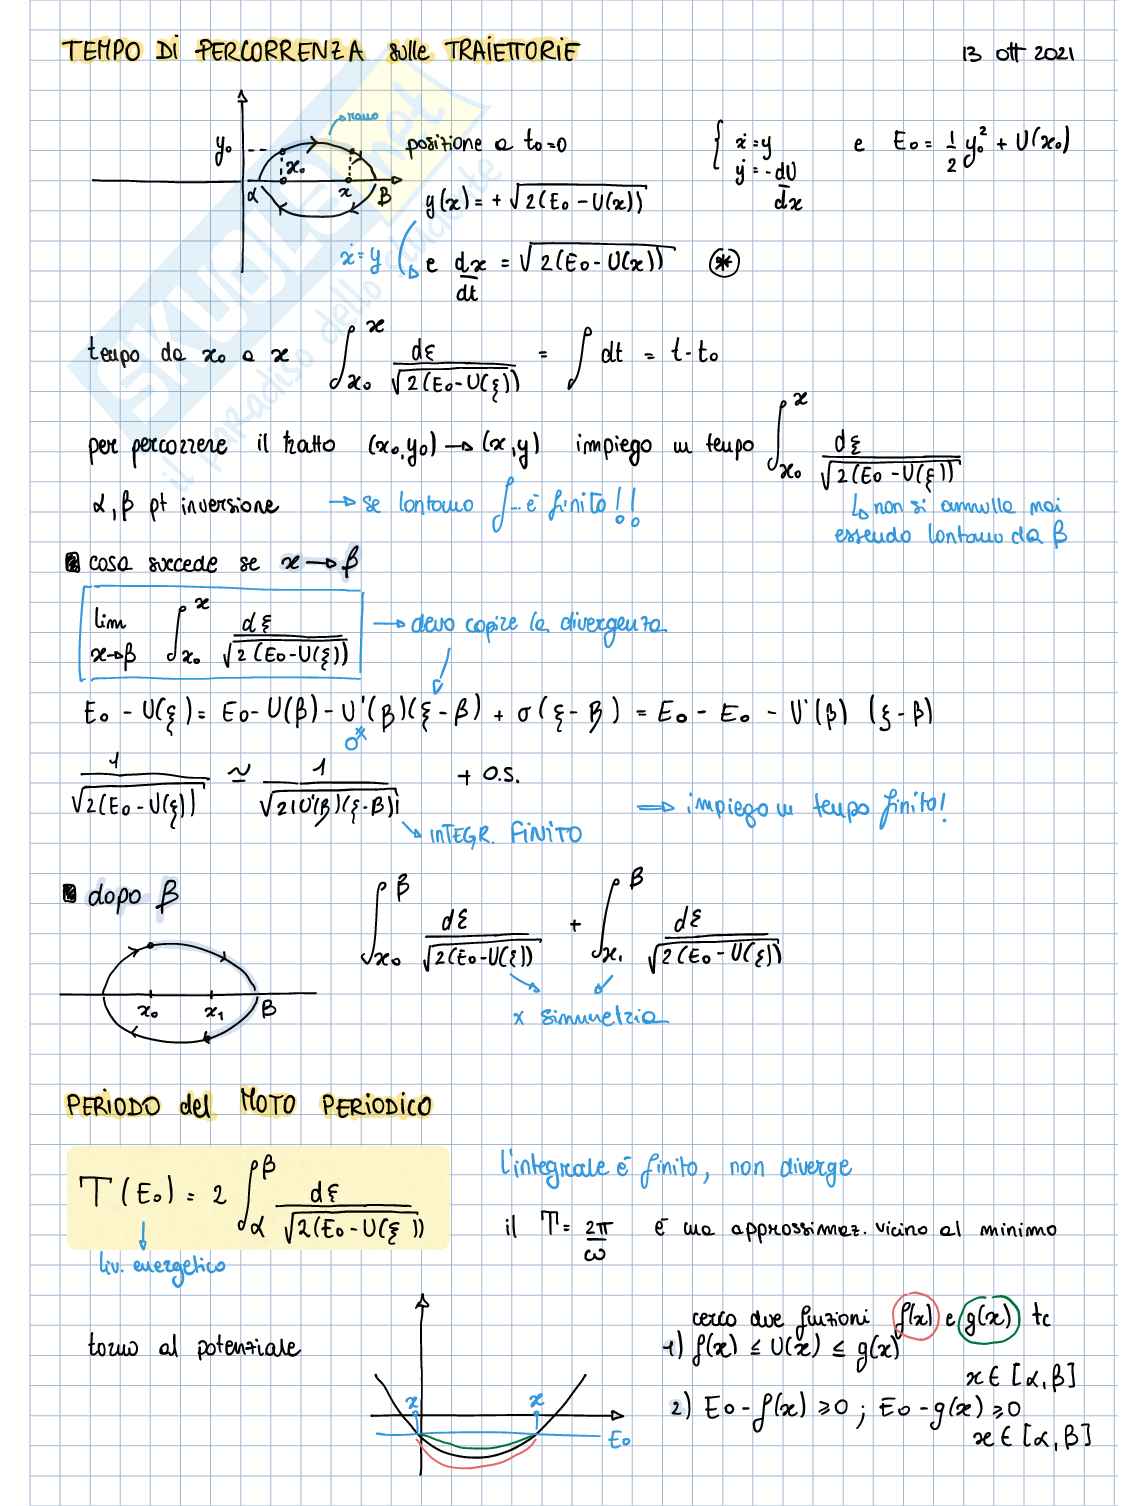 TEMPO Di PERCORRENZA sulle TRAIETTORIE
13 ott 2021
ramo
y₀
x₀
α x β
posizione a t₀=0
{ ẋ=y
ẏ=-dU/dx
e E₀ = 1/2 y₀² + U(x₀)
y(x) = + √2(E₀ - U(x))
ẋ=y
e dx/dt = √2(E₀ - U(x)) (*)
tempo da x₀ a x ∫_{x₀}^{x} dξ/√2(E₀-U(ξ)) = ∫ dt = t-t₀
per percorrere il tratto (x₀,y₀) → (x,y) impiego un tempo ∫_{x₀}^{x} dξ/√2(E₀-U(ξ))
α, β pt inversione → se lontano ∫... è finito!!
↳ non si annulla mai
essendo lontano da β
cosa succede se x → β
lim x→β ∫_{x₀}^{x} dξ/√2(E₀-U(ξ)) → devo capire la divergenza
E₀ - U(ξ) = E₀ - U(β) - U'(β)(ξ-β) + σ(ξ-β) = E₀ - E₀ - U'(β) (ξ-β)
0*
1/√2(E₀-U(ξ)) ≃ 1/√2|U'(β)(ξ-β)| + O.S.
⇒ impiego un tempo finito!
INTEGR. FINITO
dopo β
∫_{x₀}^{β} dξ/√2(E₀-U(ξ)) + ∫_{x₁}^{β} dξ/√2(E₀-U(ξ))
x₀ x₁ β
x simmetria
PERIODO del MOTO PERIODICO
T(E₀) = 2 ∫_{α}^{β} dξ/√2(E₀-U(ξ))
l'integrale è finito, non diverge
il T = 2π/ω è una approssimaz. vicino al minimo
liv. energetico
torno al potenziale
cerco due funzioni f(x) e g(x) tc
1) f(x) ≤ U(x) ≤ g(x)
x ∈ [α, β]
2) E₀ - f(x) ≥ 0 ; E₀ - g(x) ≥ 0
x ∈ [α, β]
x x
E₀
SKUOLA.net
il paradiso dello studente